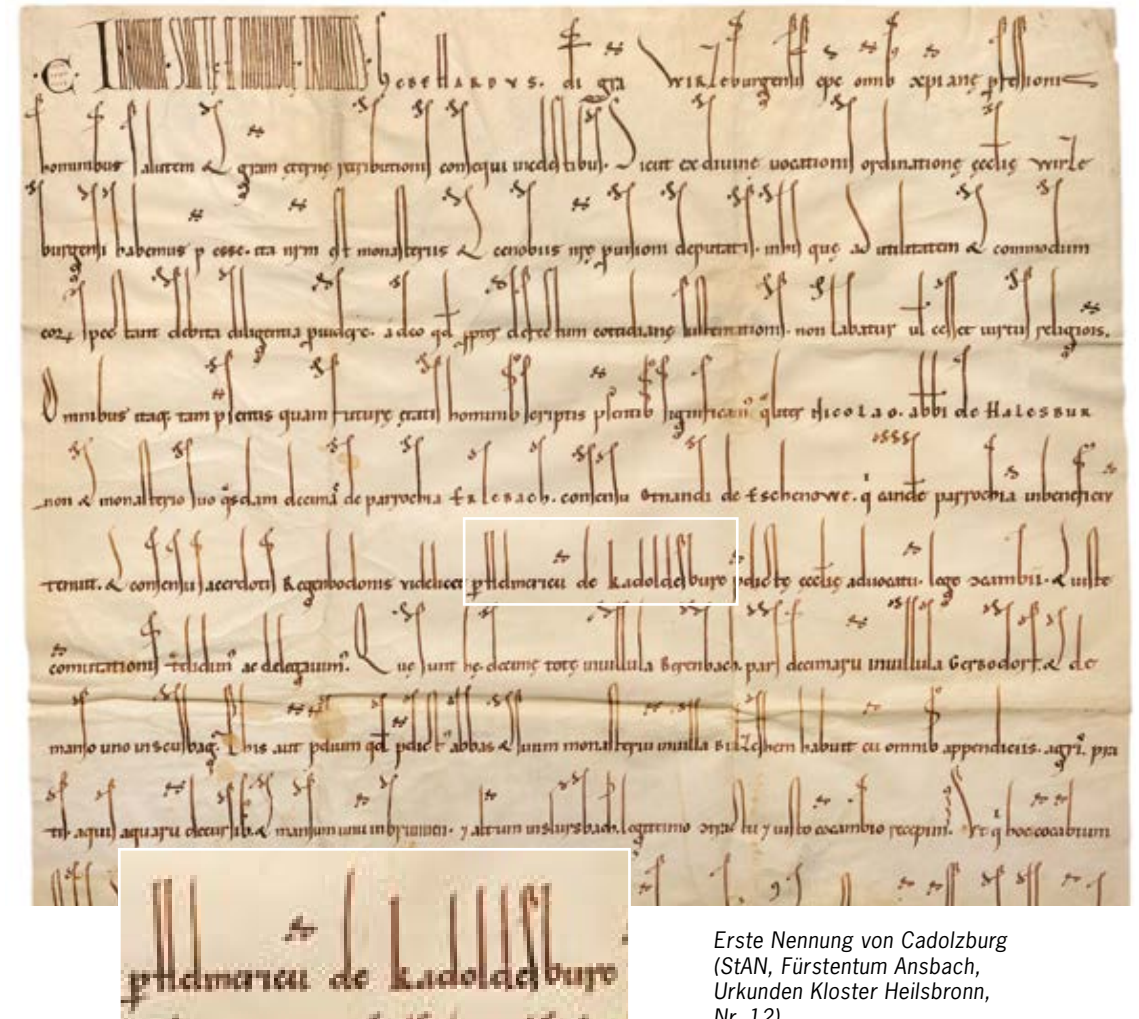 C IN NOMINE SANCTE ET INDIVIDUE TRINITATIS. hebeHARDVS. di gra WIRZeburgensis epc omib xpiane pfessionis
hominibus salutem & gram eterne retributionis consequi incelestibus. Sicut ex divine vocationis ordinatione ecclie wirze
burgensi habemus p esse. ita nrm est monasteriis & cenobiis nre puisioni deputatis. inhis que ad utilitatem & commodum
spectant debita diligentia puidere. adeo qd ppter defectum cotidiane sustentationis. non labatur ul cesset uirtus religionis.
Omnibus itaq tam psentis quam future etatis hominib scriptis psentib significam qliter Nicolao. abbi de Halesbur
non & monasterio suo qsdam decimas de parrochia Erlebach. consensu Ernandi de Eschenowe. q eande parrochia inbeneficiu
tenuit. & consensu sacerdotis Regenbodonis videlicet p Helmericu de kadoldesburc pdicte ecclie aduocatu. lege cambii. & iuste
comutationis tdidim ac delegauim. Que sunt he. decime tote inuillula Berenbach. pars decimaru inuillula Gerbodorf. & de
manso uno in His aut pdium qd pdict abbas & suum monasteriu inuilla habuit cu omnib appendiciis. agris. pra
tis. aquis aquaru decursib. & mansum unu in & alterum legitimo & iusto cocambio recepim. Et q hoc cocabium
p Helmericu de kadoldesburc
Erste Nennung von Cadolzburg
(StAN, Fürstentum Ansbach,
Urkunden Kloster Heilsbronn,
Nr. 12)